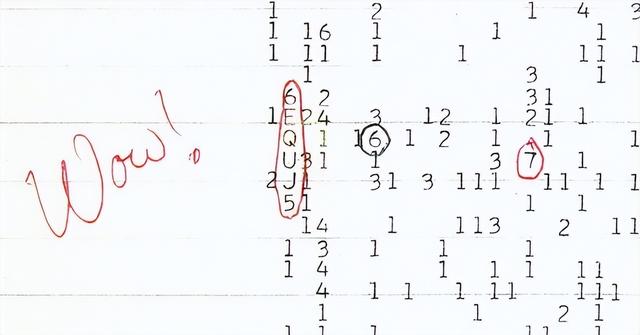 1 2 1 4 3
1 16 1 1
1 11 1 1 11 1
1 3 1
6 2 31
1 E24 3 12 1 21 1
Q 1 1 6 1 2 1 1 1
U31 1 3 7 1
2 J1 31 3 111 11 1 1
51 1 1
14 1 113 2 11
1 3 1 1 1
1 4 1 1 1 11
4 1 1 1 11 111
1 1 2 1
Wow!